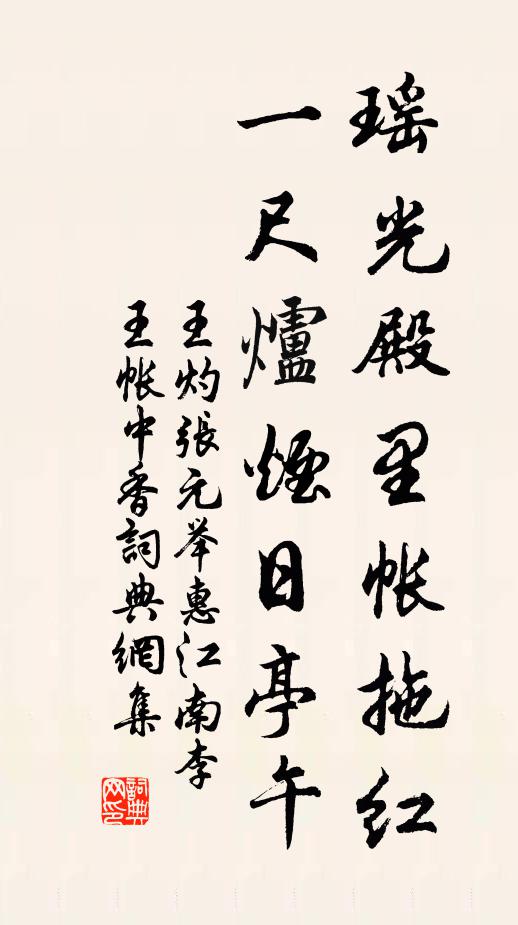 瑶光殿里帐拖红
一尺爐煙日亭午
王灼張元举惠江南李
王帐中香詞典網集
詞典网印